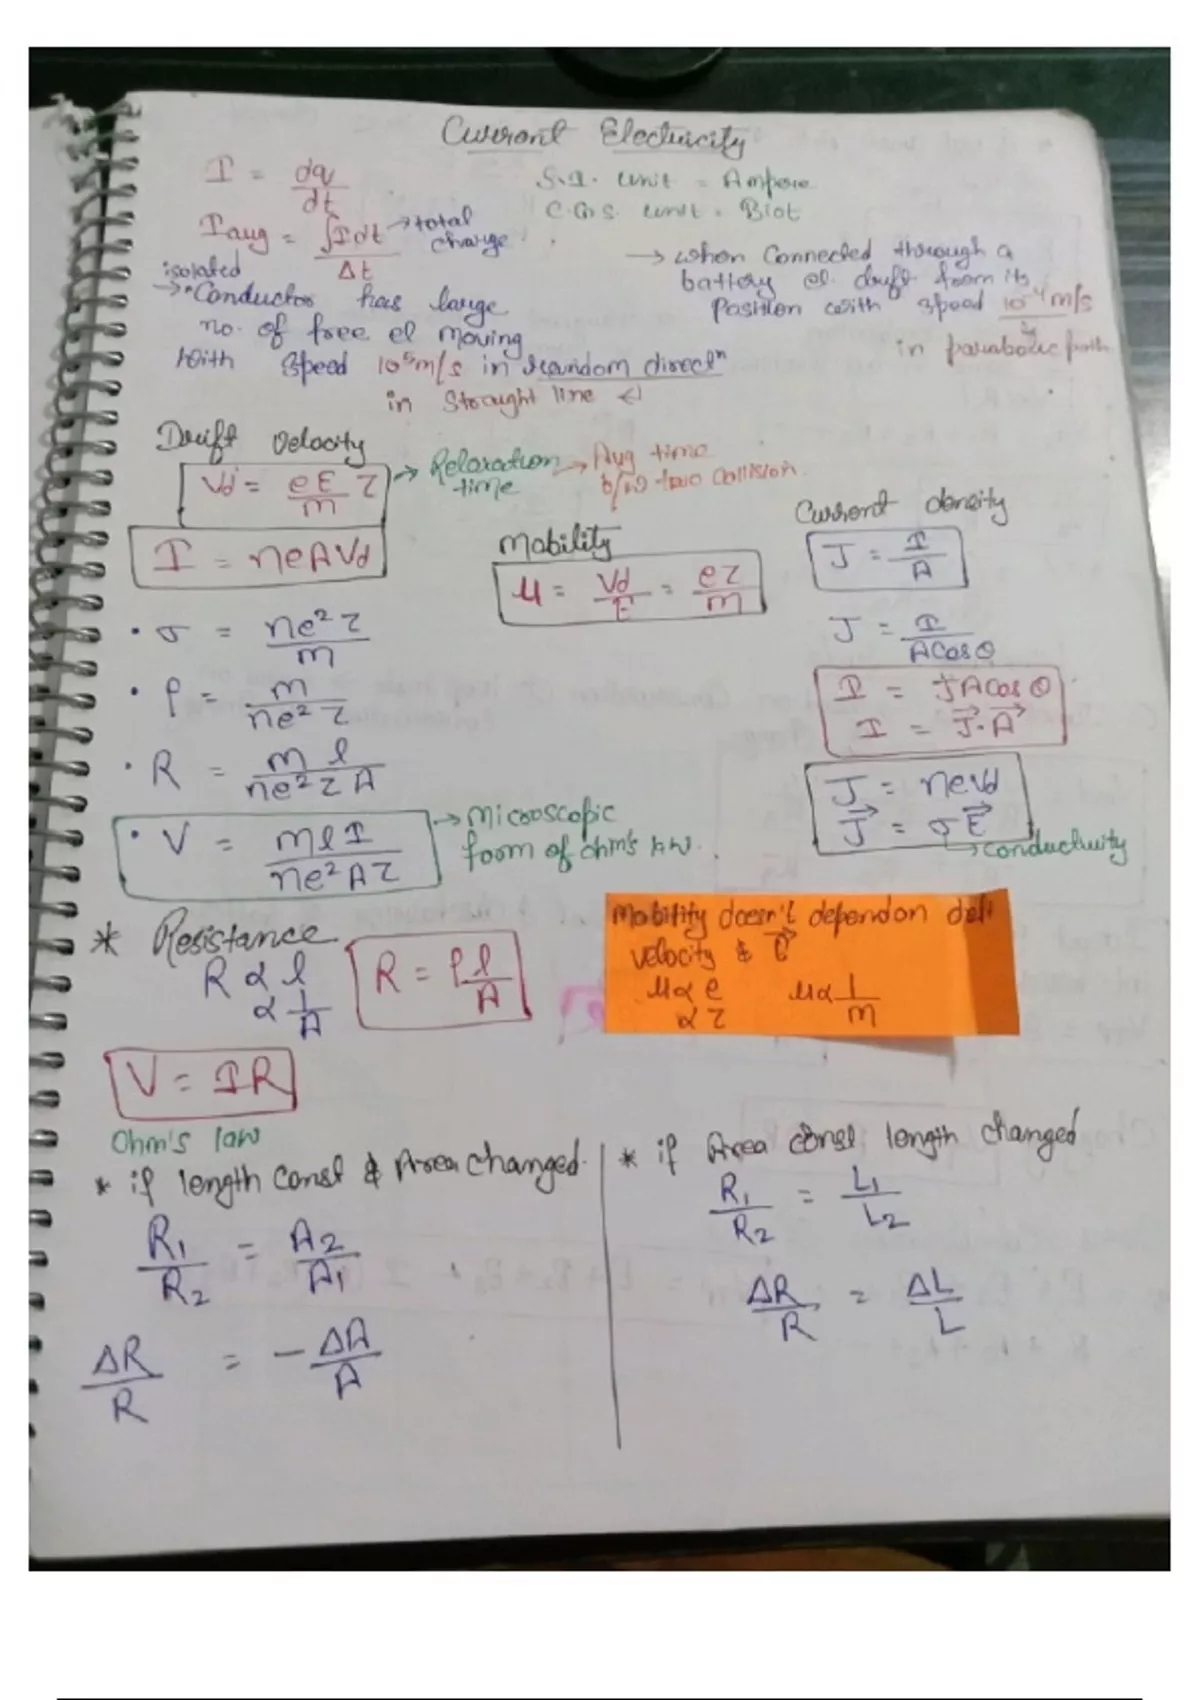 Current Electricity
I = dq/dt
S.I. unit = Ampere
C.G.S. unit = Biot
Iavg = ∫Idt/Δt → total charge
isolated
→ * Conductor has large
no. of free el moving
with speed 10⁵m/s in random directⁿ
in straught line
→ when Connected through a
battery el. drift from its
Position with speed 10⁻⁴m/s
in parabolic path
Drift Velocity
Vd = eE/m τ → Relaxation time → Avg time b/w two Collision
I = neAVd
Mobility
μ = Vd/E = eτ/m
Current density
J = I/A
J = I/ACosθ
I = JACosθ
I = J⃗·A⃗
J = neVd
J⃗ = σE⃗
→ conductivity
• σ = ne²τ/m
• ρ = m/ne²τ
• R = m l/ne²τ A
• V = mlI/ne²Aτ → Microscopic
form of ohm's law.
* Resistance
R α l
α 1/A
R = ρl/A
Mobility doesn't depend on
velocity &
μ α e
α τ
μ α 1/m
V = IR
Ohm's law
* if length Const & Area changed.
R₁/R₂ = A₂/A₁
ΔR/R = -ΔA/A
* if Area const length changed
R₁/R₂ = L₁/L₂
ΔR/R = ΔL/L